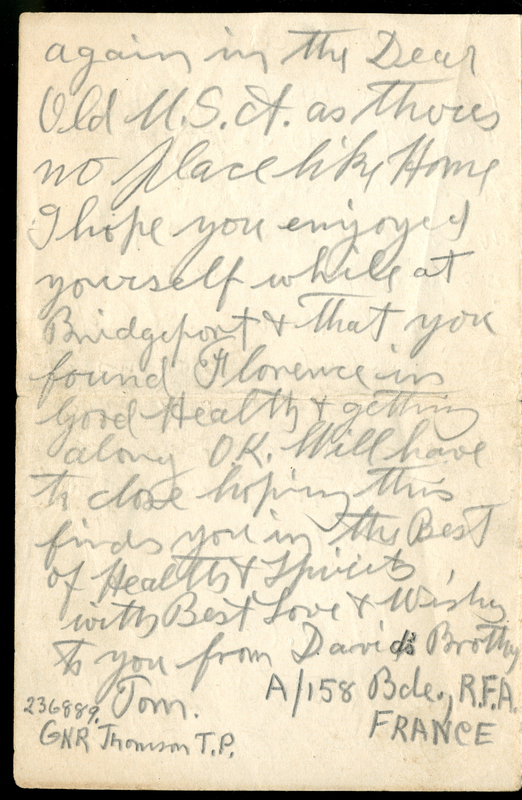 again in the Dear
Old U.S.A. as theres
no place like Home
I hope you enjoyed
yourself while at
Bridgeport & that you
found Florence in
Good Health & getting
along OK. Will have
to close hoping this
finds you in the Best
of Health & Spirits
with Best Love & Wishes
to you from Davids Brother
Tom. A/158 Bde., R.F.A.
236889. FRANCE
GNR Thomson T.P.